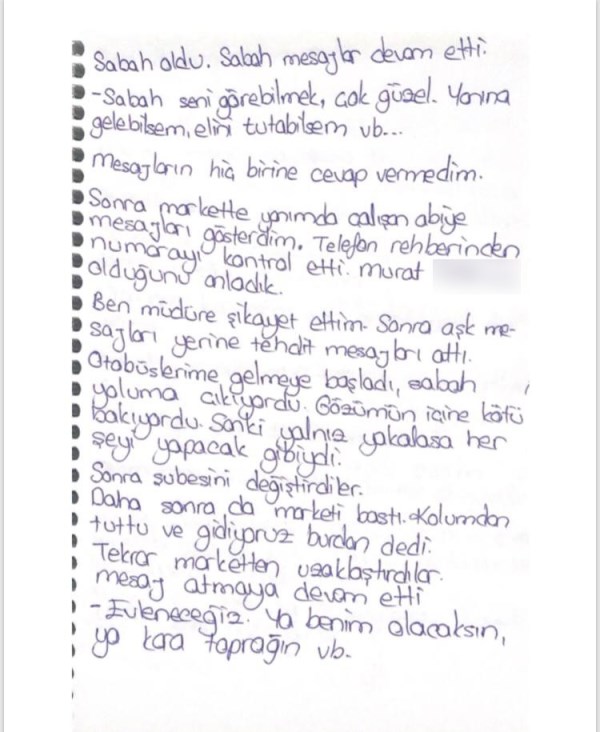 Sabah oldu. Sabah mesajlar devam etti.
-Sabah seni görebilmek, çok güzel. Yanına
gelebilsem, elini tutabilsem vb...
Mesajların hiç birine cevap vermedim.
Sonra markette yanımda çalışan abiye
mesajları gösterdim. Telefon rehberinden
numarayı kontrol etti. Murat
olduğunu anladık.
Ben müdüre şikayet ettim. Sonra aşk me-
sajları yerine tehdit mesajları attı.
Otobüslerime gelmeye başladı, sabah
yoluma çıkıyordu. Gözümün içine kötü
bakıyordu. Sanki yalnız yakalasa her
şeyi yapacak gibiydi.
Sonra şubesini değiştirdiler.
Daha sonra da marketi bastı. Kolumdan
tuttu ve gidiyoruz burdan dedi.
Tekrar marketten uzaklaştırdılar.
mesaj atmaya devam etti
- Evleneceğiz. Ya benim olacaksın,
ya kara toprağın vb.